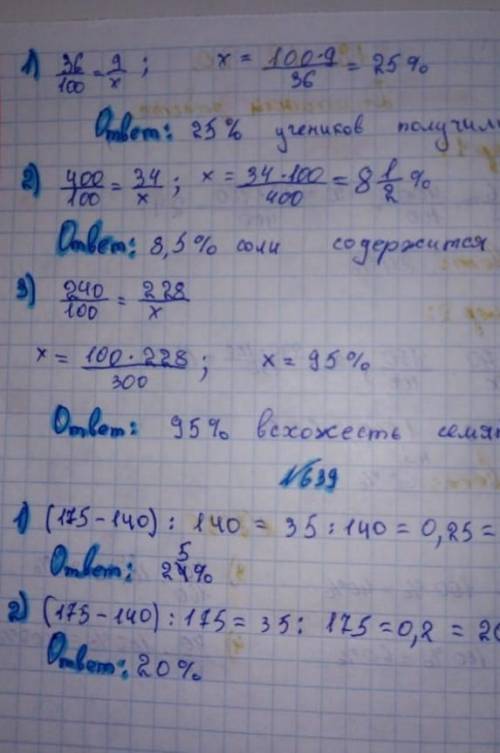 1) 36/100 = 9/x ; x = 100·9/36 = 25%
Ответ: 25% учеников получил
2) 400/100 = 34/x ; x = 34·100/400 = 8 1/2 %
Ответ: 8,5% соли содержится
3) 240/100 = 228/x
x = 100·228/300 ; x = 95%
Ответ: 95% всхожесть семян
№639
1) (175 - 140) : 140 = 35 : 140 = 0,25 =
Ответ: 25%
2) (175 - 140) : 175 = 35 : 175 = 0,2 = 20
Ответ: 20%